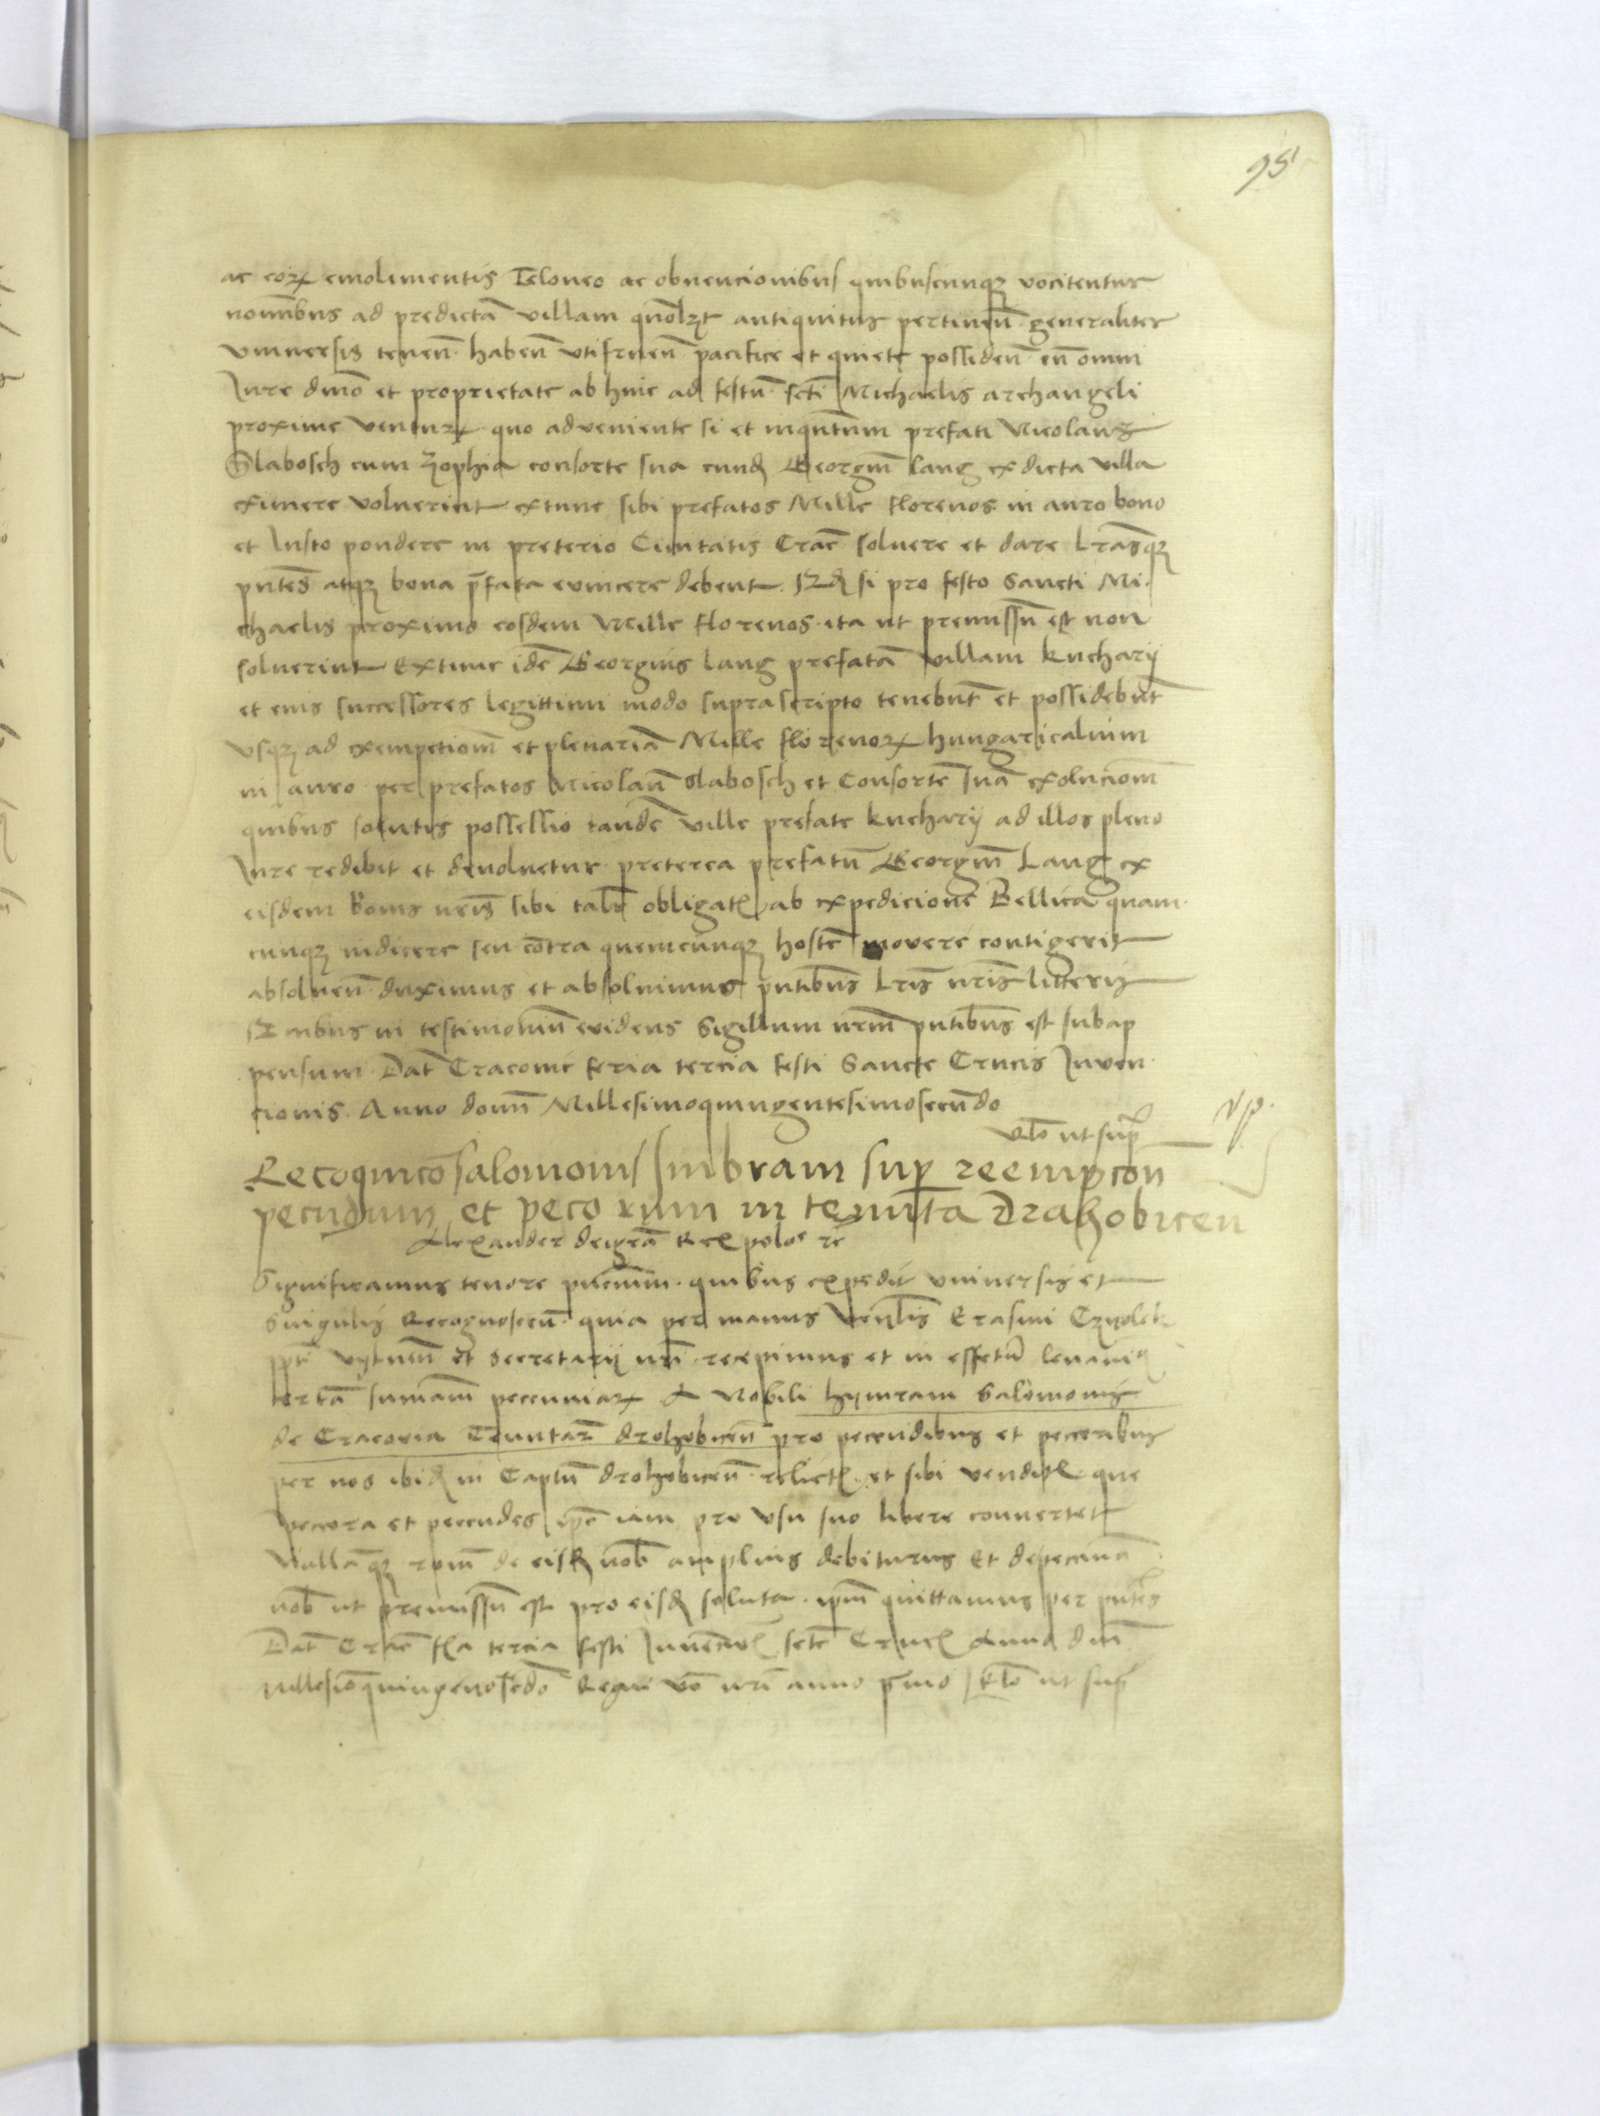 95
ac eorꝝ emolimentis Teloneo ac obvencionibus quibuscunqꝫ vocitentur
nominibus ad predictā villam qnolꝫt antiquitus pertineñ generaliter
vniversis teneñ habeñ vtifrueñ pacifice et quiete possideñ cū omni
Jure dnio et proprietate ab hinc ad festū scti Michaelis archangeli
proxime venturꝝ quo adveniente si et inquntum prefati Nicolaus
Slabosch cum Zophia consorte sua eundꝫ Georgiū lang ex dicta villa
eximere voluerint extunc sibi prefatos Mille florenos in auro bono
et Justo pondere in pretorio Civitatis Crac̄ solvere et dare Lrasqꝫ
pntes atqꝫ bona p̄fata evincere debent. Qđ si pro festo Sancti Mi-
chaelis proximo eosdem Mille florenos ita ut premissū est non
soluerint Extunc idē Georgius lang prefatā villam kucharij
et eius successores legittimi modo suprascripto tenebūt et possidebūt
vsqꝫ ad exempcionē et plenariā Mille florenorꝝ hungaricalium
in auro per prefatos Nicolaū Slabosch et Consortē suā exolucionē
quibus solutis possessio tandē ville prefate kucharij ad illos pleno
Jure redibit et deuoluetur preterea prefatū Georgiū Lang ex
eisdem Bonis nris sibi talr̄ obligatꝭ ab expedicione Bellica quam-
cunqꝫ indicere seu cōtra quemcunqꝫ hostē movere contigerit
absoluen̄ duximus et absoluimus pntibus Lris nris
Quibus in testimoniū evidens Sigillum nrm̄ pntibus est subap
pensum Dat̄ Cracovie feria tercia festi Sancte Crucis Inven-
cionis Anno domī Millesimoquingentesimosecūdo
ut sup̄
Recognico Salomonis sup̄ reempcon̄
pecudum et pecorum in tenuta Drahobicen̄
Alexander dei grā Rex polo꞉ rē
Significamus tenore pn̄cium quibus expedit vniversis et
Singulis Recognoscen̄ quia per manus Ven̄lis Erasmi Czyolek
ppti et Secretarij nri recepimus et in effectū
certā sumam pecuniarꝝ A Nobili hymram Salomonis
de Cracovia Tenutar̄ drohobicen̄ pro pecudibus et peccoribus
per nos ibidꝫ in Captū drohobicen̄ relictꝭ et sibi venditꝭ que
peccora et peccudes ip̄e iam pro vsu suo libere convertet
Nullāqꝫ de eisdꝫ nob̄ amplius debiturus Et de pecunia
nob̄ ut premissū est pro eisdꝫ soluta ip̄m quittamus per pntes
Dat̄ Crac̄ fīa tercia festi Invēcīs scte Crucis Anno dnī
Millesimoquingenosecdō Regni vō nri anno p̄mo Rlō ut sup̄